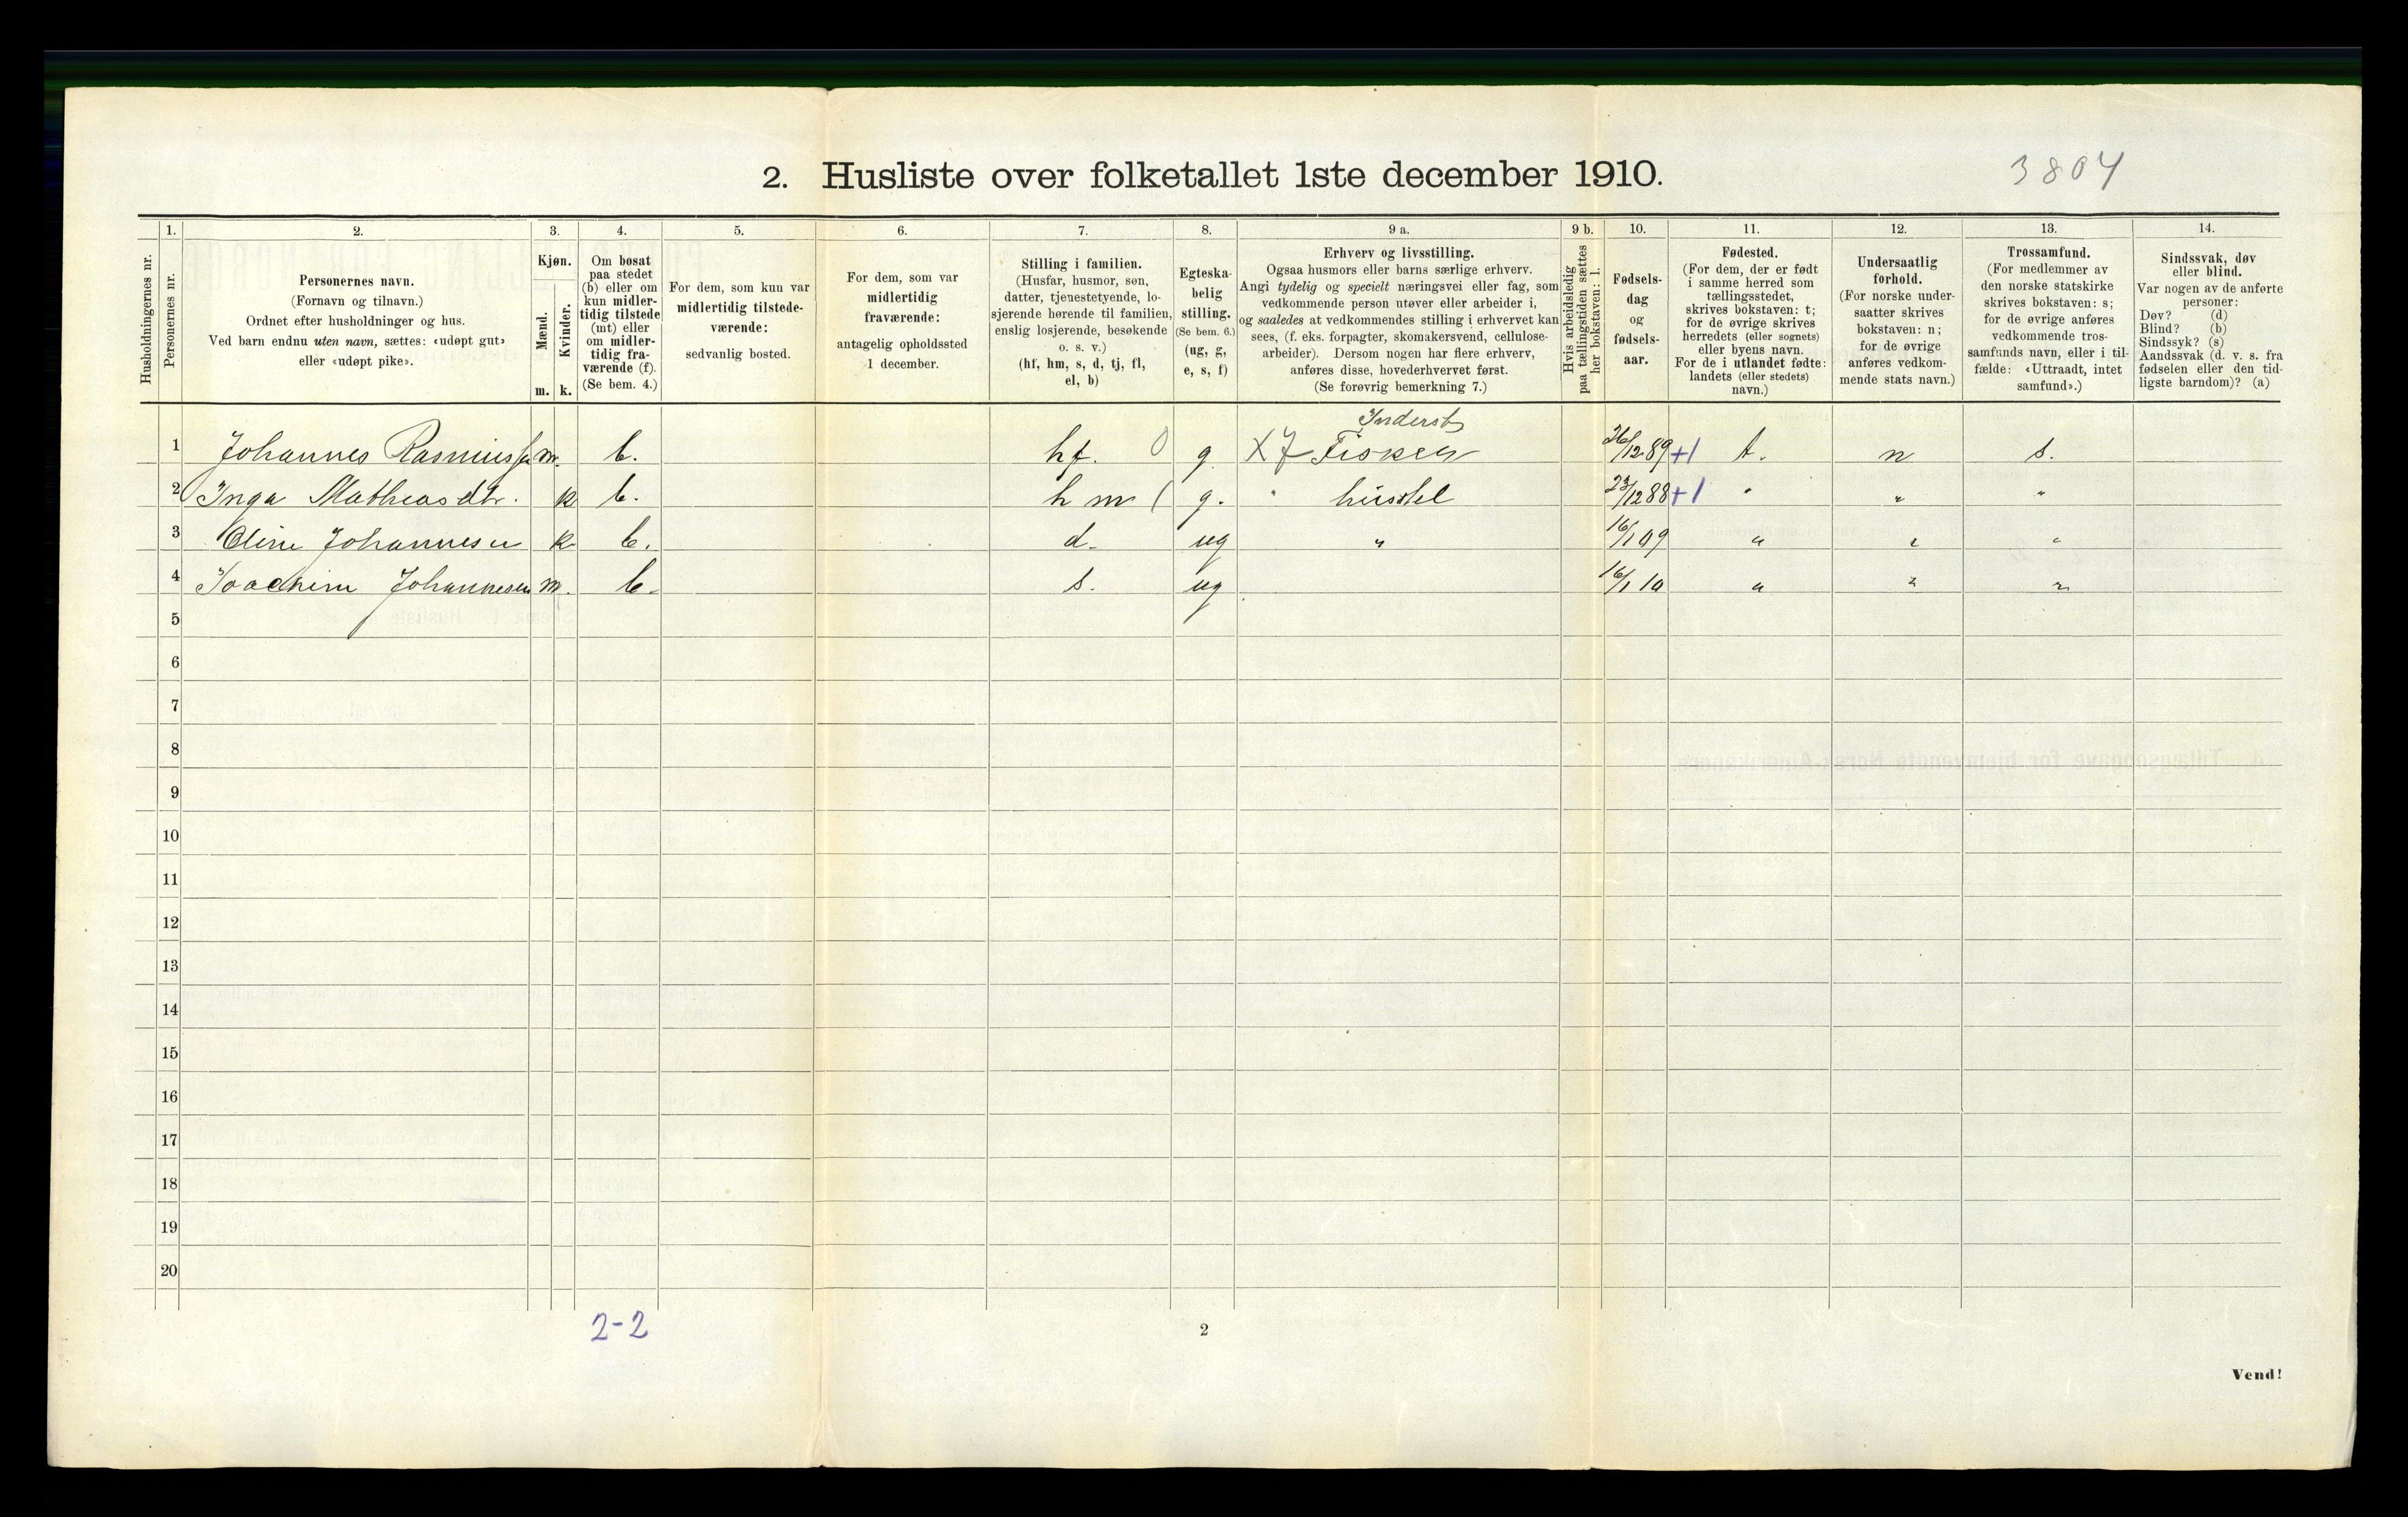 2. Husliste over folketallet 1ste december 1910.
3804
Husholdningernes nr.
1.
Personernes nr.
2.
Personernes navn.
(Fornavn og tilnavn.)
Ordnet efter husholdninger og hus.
Ved barn endnu uten navn, sættes: «udøpt gut»
eller «udøpt pike».
3.
Kjøn.
Mænd.
Kvinder.
m. k.
4.
Om bosat
paa stedet
(b) eller om
kun midler-
tidig tilstede
(mt) eller
om midler-
tidig fra-
værende (f).
(Se bem. 4.)
5.
For dem, som kun var
midlertidig tilstede-
værende:
sedvanlig bosted.
6.
For dem, som var
midlertidig
fraværende:
antagelig opholdssted
1 december.
7.
Stilling i familien.
(Husfar, husmor, søn,
datter, tjenestetyende, lo-
sjerende hørende til familien,
enslig losjerende, besøkende
o. s. v.)
(hf, hm, s, d, tj, fl,
el, b)
8.
Egteska-
belig
stilling.
(Se bem. 6.)
(ug, g,
e, s, f)
9 a.
Erhverv og livsstilling.
Ogsaa husmors eller barns særlige erhverv.
Angi tydelig og specielt næringsvei eller fag, som
vedkommende person utøver eller arbeider i,
og saaledes at vedkommendes stilling i erhvervet kan
sees, (f. eks. forpagter, skomakersvend, cellulose-
arbeider). Dersom nogen har flere erhverv,
anføres disse, hovederhvervet først.
(Se forøvrig bemerkning 7.)
9 b.
Hvis arbeidsledig
paa tællingstiden sættes
her bokstaven: l.
10.
Fødsels-
dag
og
fødsels-
aar.
11.
Fødested.
(For dem, der er født
i samme herred som
tællingsstedet,
skrives bokstaven: t;
for de øvrige skrives
herredets (eller sognets)
eller byens navn.
For de i utlandet fødte:
landets (eller stedets)
navn.)
12.
Undersaatlig
forhold.
(For norske under-
saatter skrives
bokstaven: n;
for de øvrige
anføres vedkom-
mende stats navn.)
13.
Trossamfund.
(For medlemmer av
den norske statskirke
skrives bokstaven: s;
for de øvrige anføres
vedkommende tros-
samfunds navn, eller i til-
fælde: «Uttraadt, intet
samfund».)
14.
Sindssvak, døv
eller blind.
Var nogen av de anførte
personer:
Døv? (d)
Blind? (b)
Sindssyk? (s)
Aandssvak (d. v. s. fra
fødselen eller den tid-
ligste barndom)? (a)
Inderst
1 Johannes m. b. hf. 0 g. X 7 Fisker 26/12 89 +1 t. n s.
2 Inga Mathiasdtr. k b. hm ( g. " husstel 23/12 88 +1 " " "
3 Oline Johannesen k b. d. ug " 16/1 09 " " "
4 Joachim Johannesen m. b. s. ug 16/1 10 " " "
5
6
7
8
9
10
11
12
13
14
15
16
17
18
19
20
2-2
2
Vend!